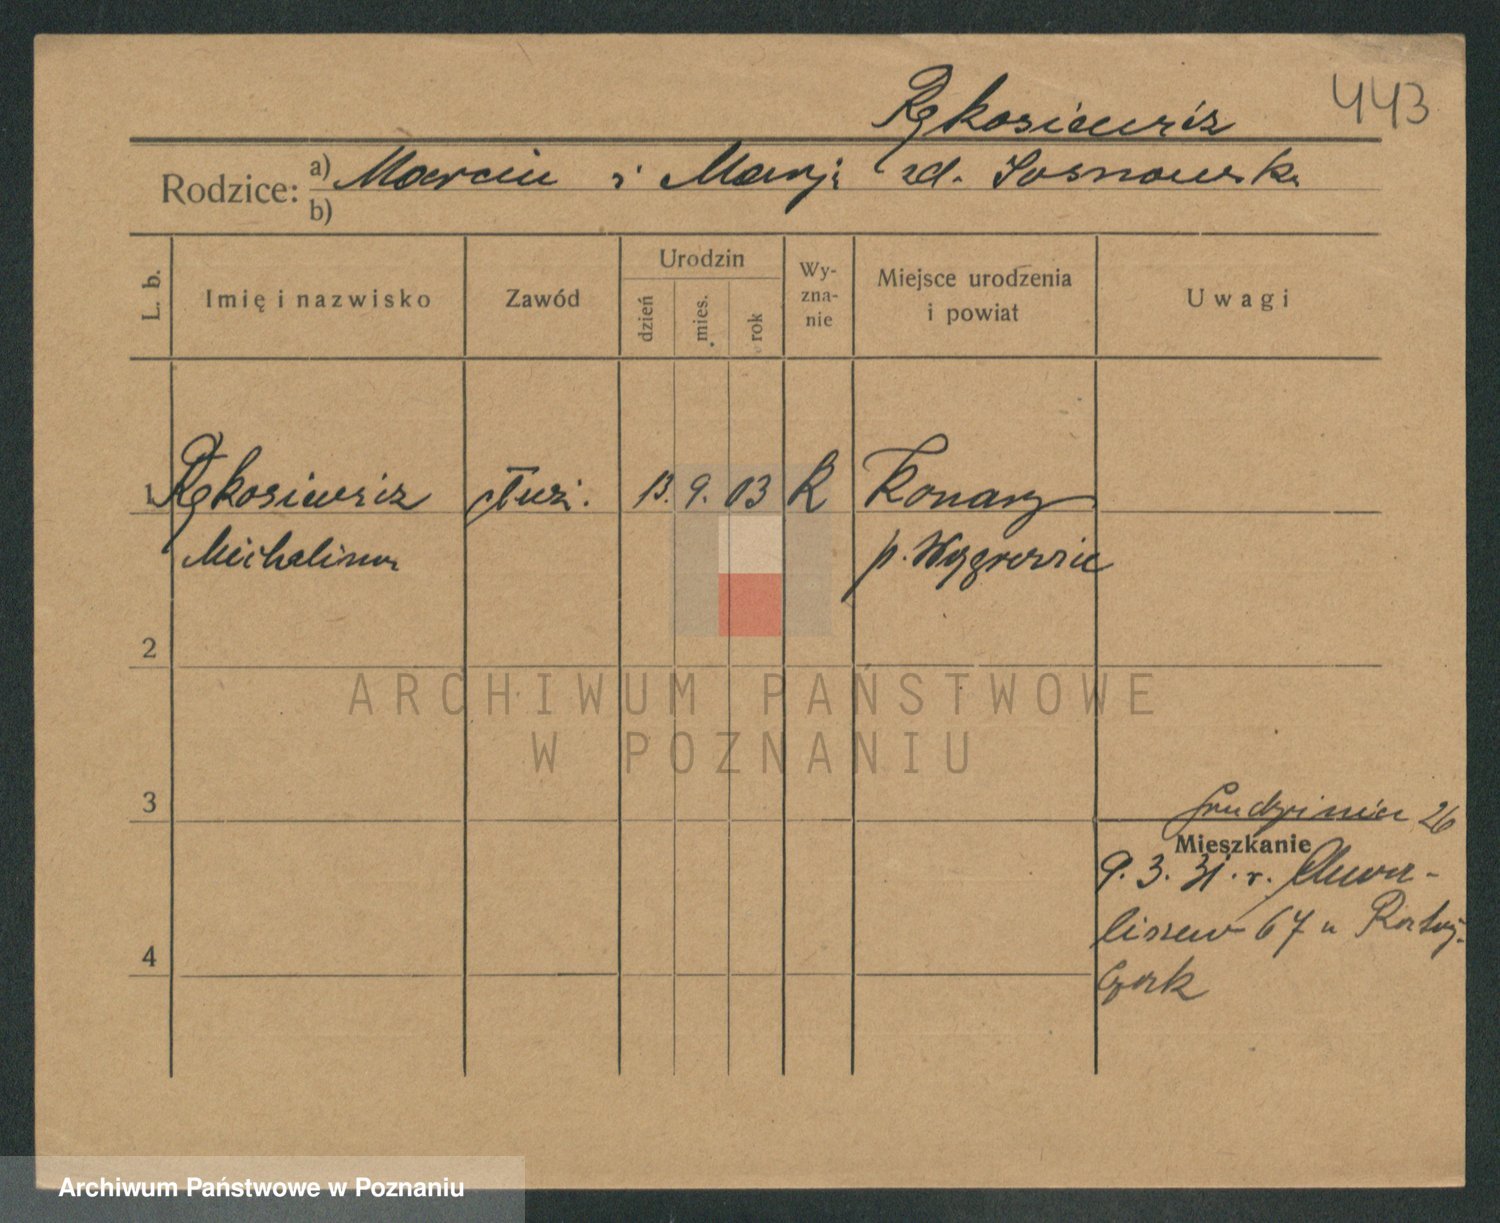 443
Rękosiewicz
Rodzice: a) Marcin i Marja zd. Sosnowska
b)
L. b. Imię i nazwisko Zawód Urodzin dzień mies. rok Wy-zna-nie Miejsce urodzenia i powiat Uwagi
1 Rękosiewicz służ. 13. 9. 03 R Konary
Michalina p. Wągrowiec
2
ARCHIWUM PAŃSTWOWE
W POZNANIU
3
Grudzieniec 26
Mieszkanie
9. 3. 31. r. Chwa-
liszewo 67 u
4
Archiwum Państwowe w Poznaniu